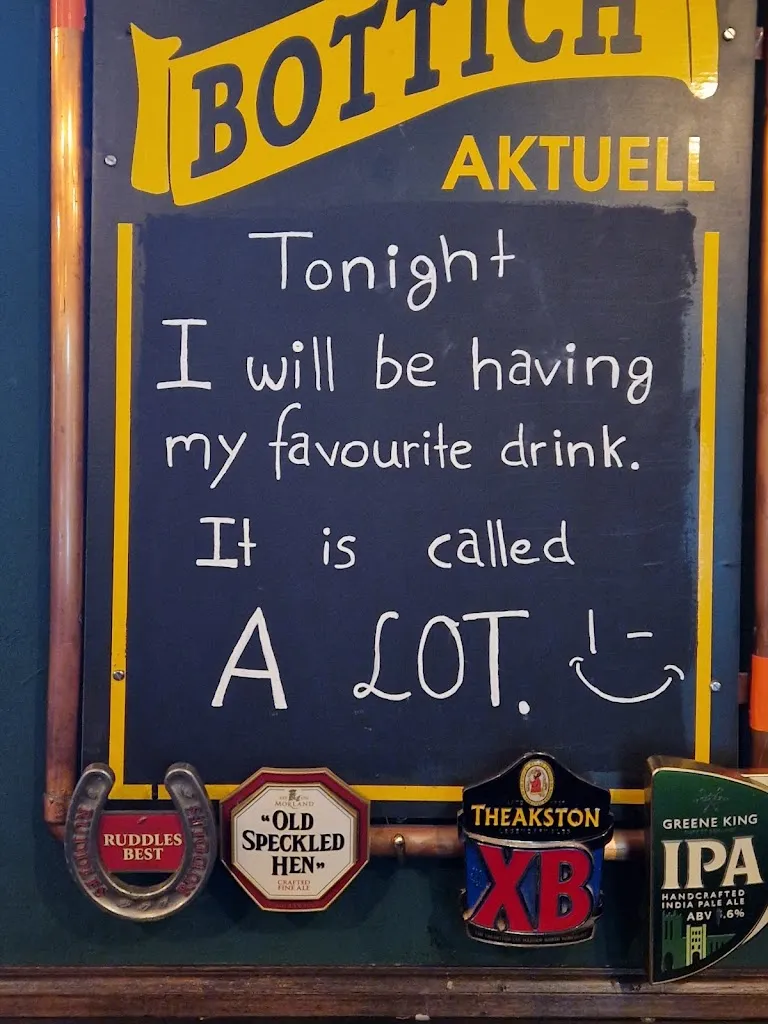 BOTTICH
AKTUELL
Tonight
I will be having
my favourite drink.
It is called
A LOT.
RUDDLES
BEST
MORLAND
"OLD
SPECKLED
HEN"
CRAFTED
FINE ALE
THEAKSTON
XB
GREENE KING
IPA
HANDCRAFTED
INDIA PALE ALE
ABV